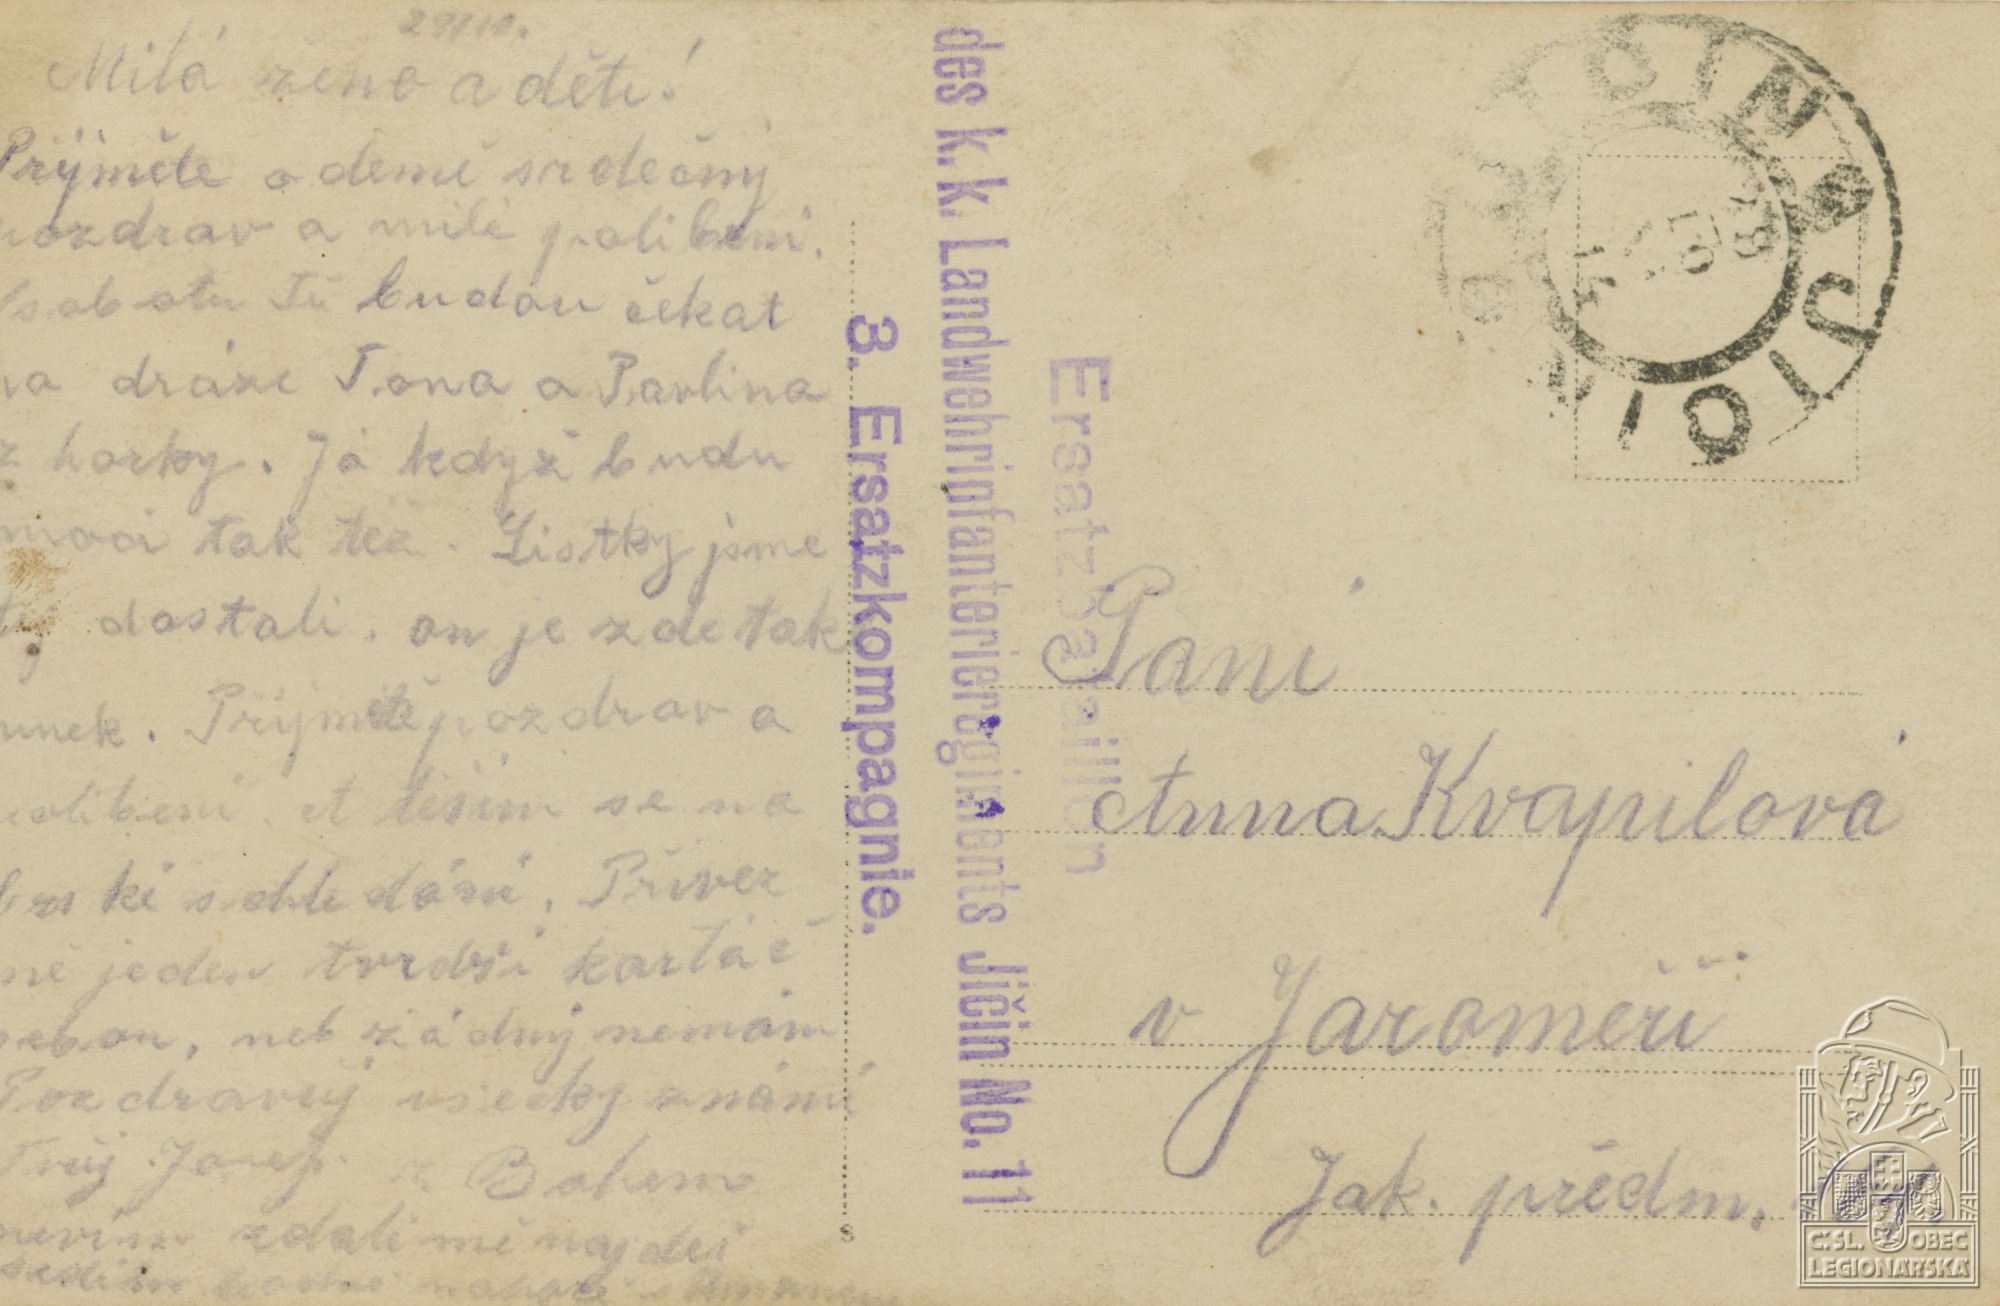 29/10.
Milá ženo a děti!
Přijměte odemě srdečný
pozdrav a milé políbení.
V sobotu Tě budou čekat
na dráze Tona a Pavlina
z horky. Já když budu
moci tak též. Listky jsme
dostali. on je zde tak
Přijměte pozdrav a
políbení. A těším se na
brzské shledání. Přivez
mě jeden tvrdší kartáč
sebou, neb žádný nemám
Pozdravuj všecky známé
Tvůj Josef. z Bohem
nevím zdali mě najdeš
3. Ersatzkompagnie.
des k. k. Landwehrinfanterieregiments Jičín No. 11
Ersatzbataillon
JIČÍN
JIČIN
Paní
Anna Kvapilova
v Jaroměři
Jak. předm.
Č.SL. OBEC
LEGIONÁŘSKÁ
S